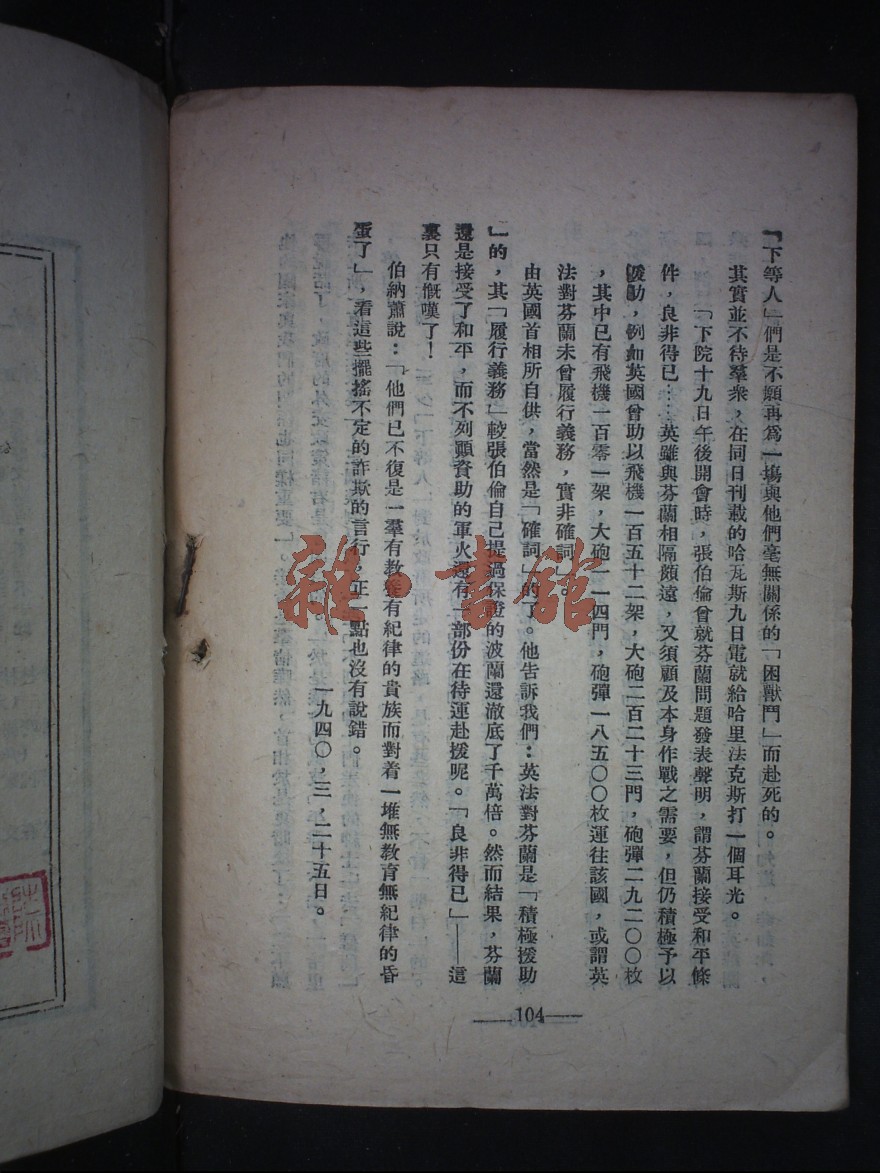 「下等人」們是不願再爲一塲與他們毫無關係的「困獸鬥」而赴死的。
其實並不待羣衆，在同日刊載的哈瓦斯九日電就給哈里法克斯打一個耳光。
「下院十九日午後開會時，張伯倫曾就芬蘭問題發表聲明，謂芬蘭接受和平條
件，良非得已……英雖與芬蘭相隔頗遠，又須顧及本身作戰之需要，但仍積極予以
援助，例如英國曾助以飛機一百五十二架，大砲二百二十三門，砲彈二九二〇〇枚
，其中已有飛機一百零一架，大砲一一四門，砲彈一八五〇〇枚運往該國，或謂英
法對芬蘭未曾履行義務，實非確詞。
由英國首相所自供，當然是「確詞」的了。他告訴我們：英法對芬蘭是「積極援助
」的，其「履行義務」較張伯倫自己提過保證的波蘭還澈底了千萬倍。然而結果，芬蘭
還是接受了和平，而不列顛資助的軍火還有一部份在待運赴援呢。「良非得已」——這
裏只有慨嘆了！
伯納蕭說：「他們已不復是一羣有教養有紀律的貴族而對着一堆無教育無紀律的昏
蛋了」，看這些擺搖不定的詐欺的言行，正一點也沒有說錯。
一九四〇，三，二十五日。
104
雜·書館